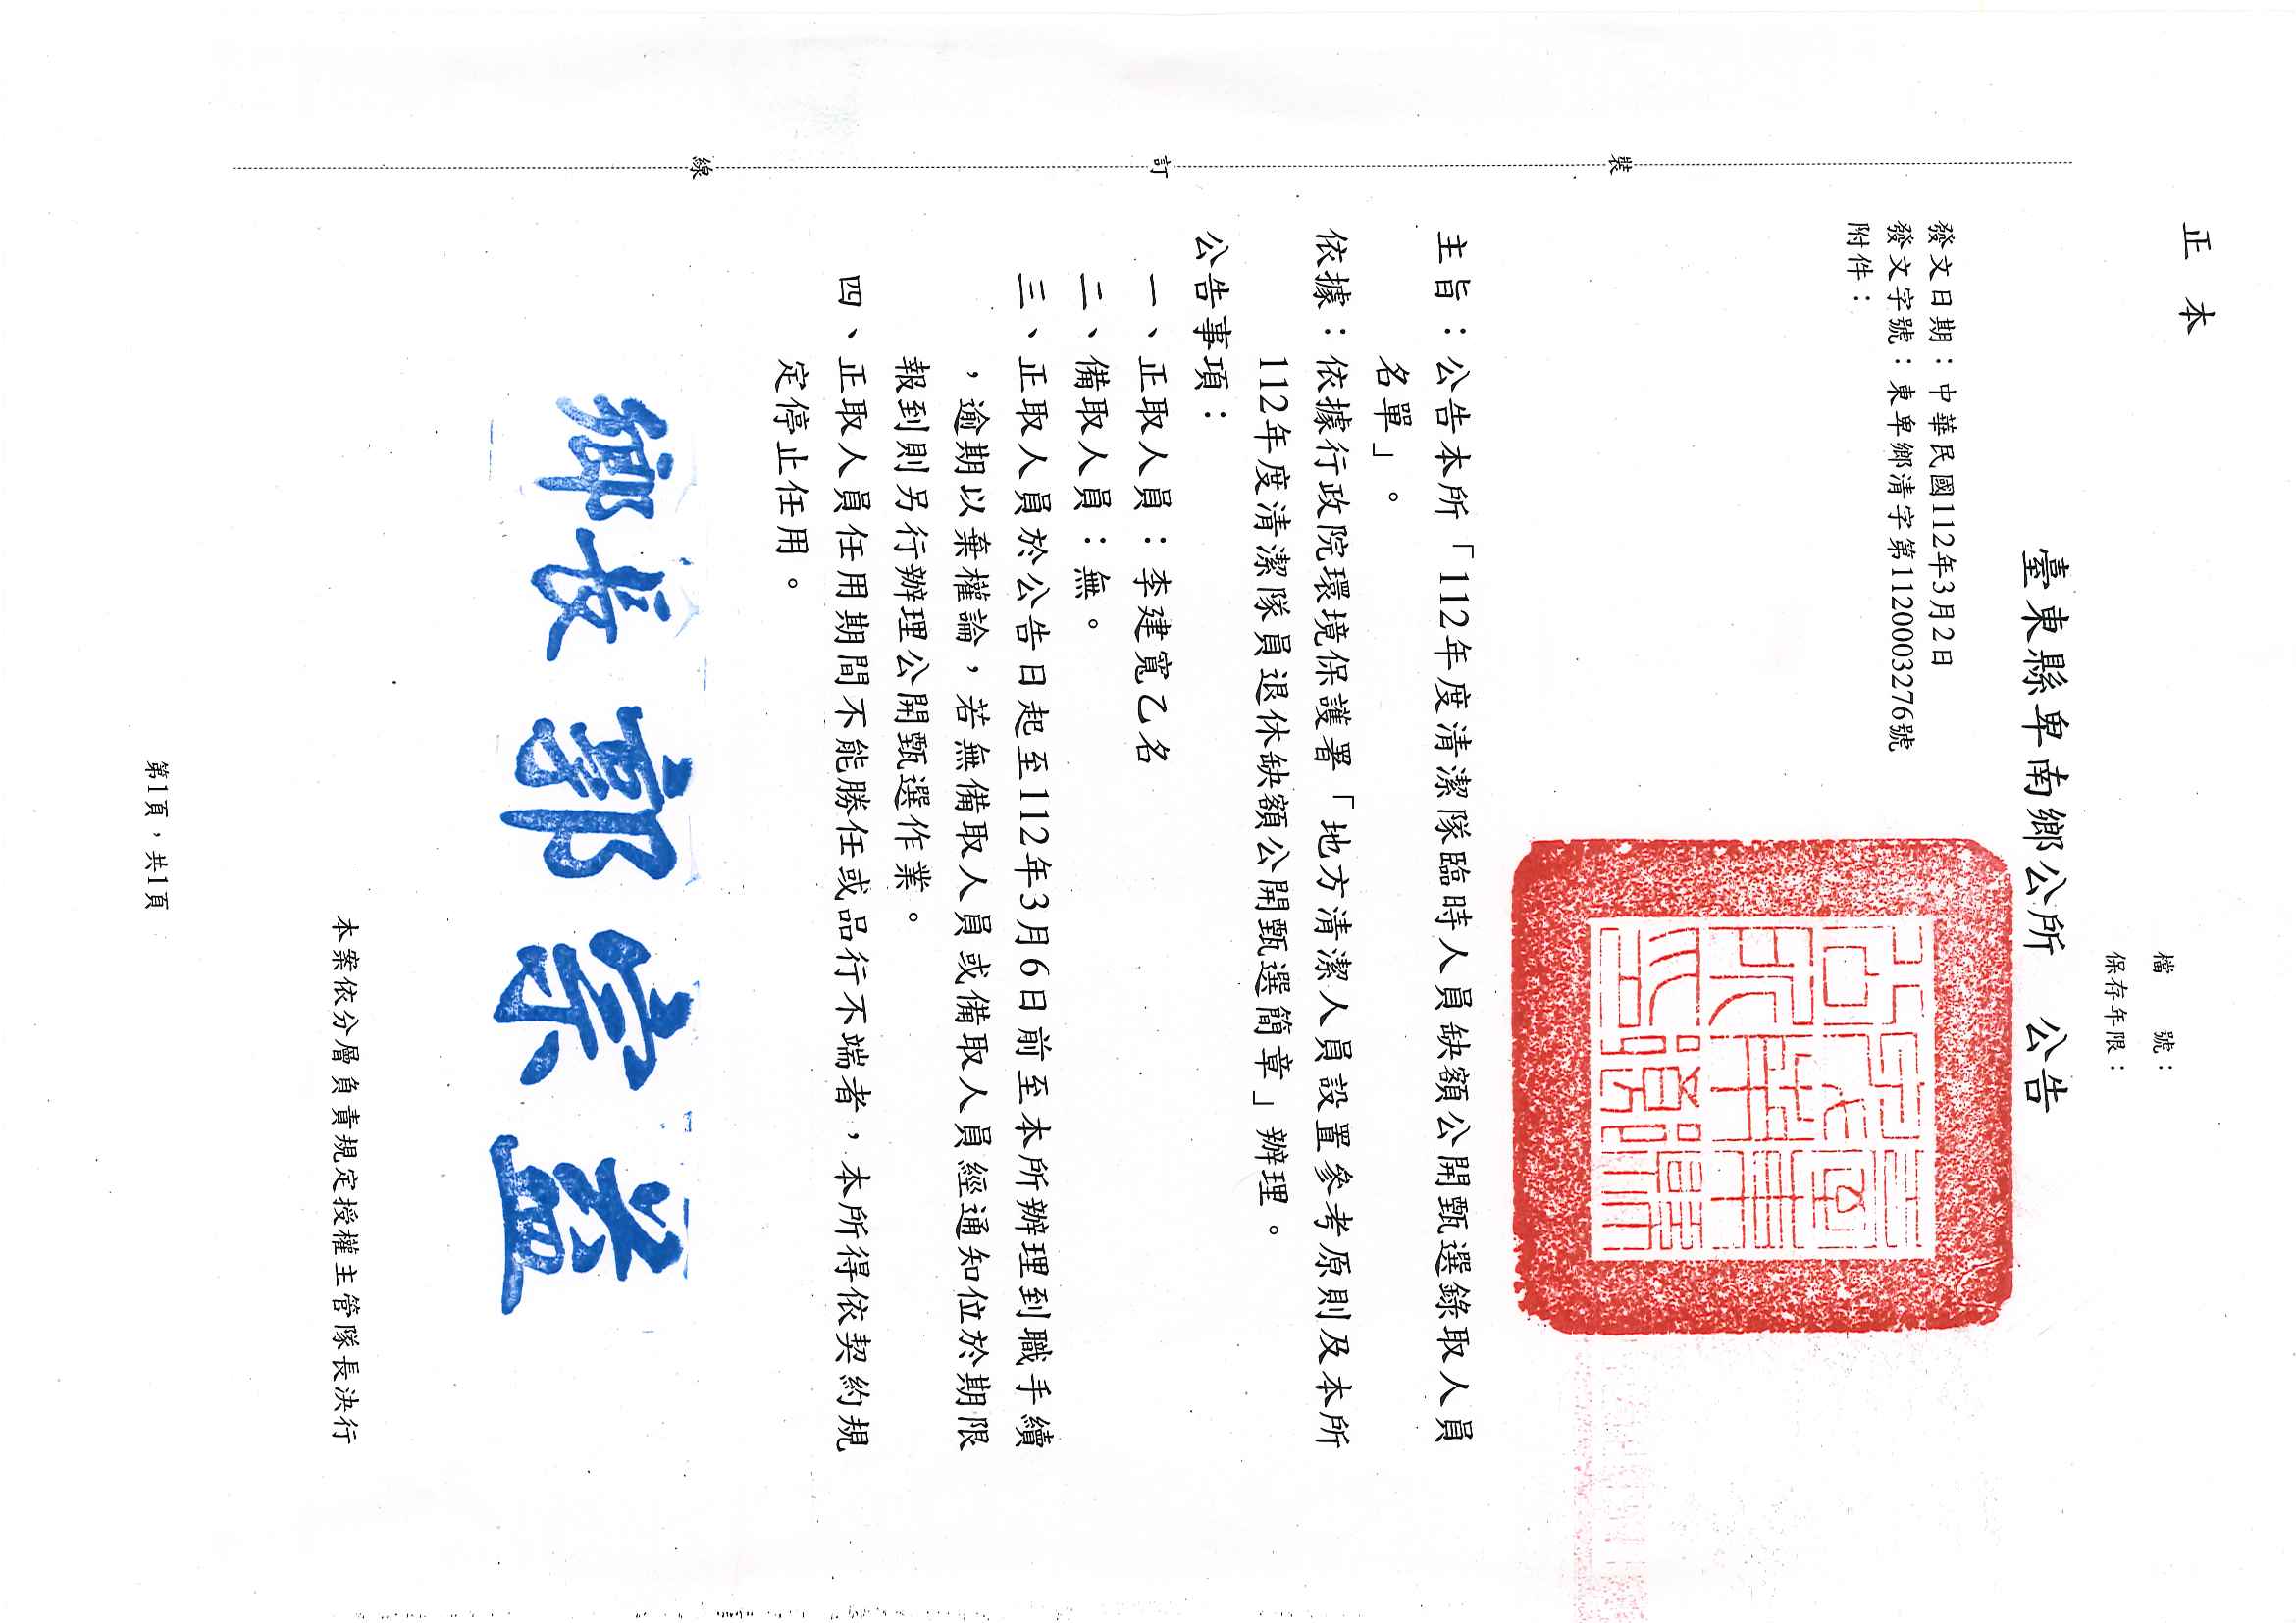 正本
檔　　號：
保存年限：
臺東縣卑南鄉公所　公告
發文日期：中華民國112年3月2日
發文字號：東卑鄉清字第1120003276號
附件：
主旨：公告本所「112年度清潔隊臨時人員缺額公開甄選錄取人員
名單」。
依據：依據行政院環境保護署「地方清潔人員設置參考原則及本所
112年度清潔隊員退休缺額公開甄選簡章」辦理。
公告事項：
一、正取人員：李建寬乙名
二、備取人員：無。
三、正取人員於公告日起至112年3月6日前至本所辦理到職手續
，逾期以棄權論，若無備取人員或備取人員經通知位於期限
報到則另行辦理公開甄選作業。
四、正取人員任用期間不能勝任或品行不端者，本所得依契約規
定停止任用。
鄉長
本案依分層負責規定授權主管隊長決行
第1頁，共1頁
裝
訂
線